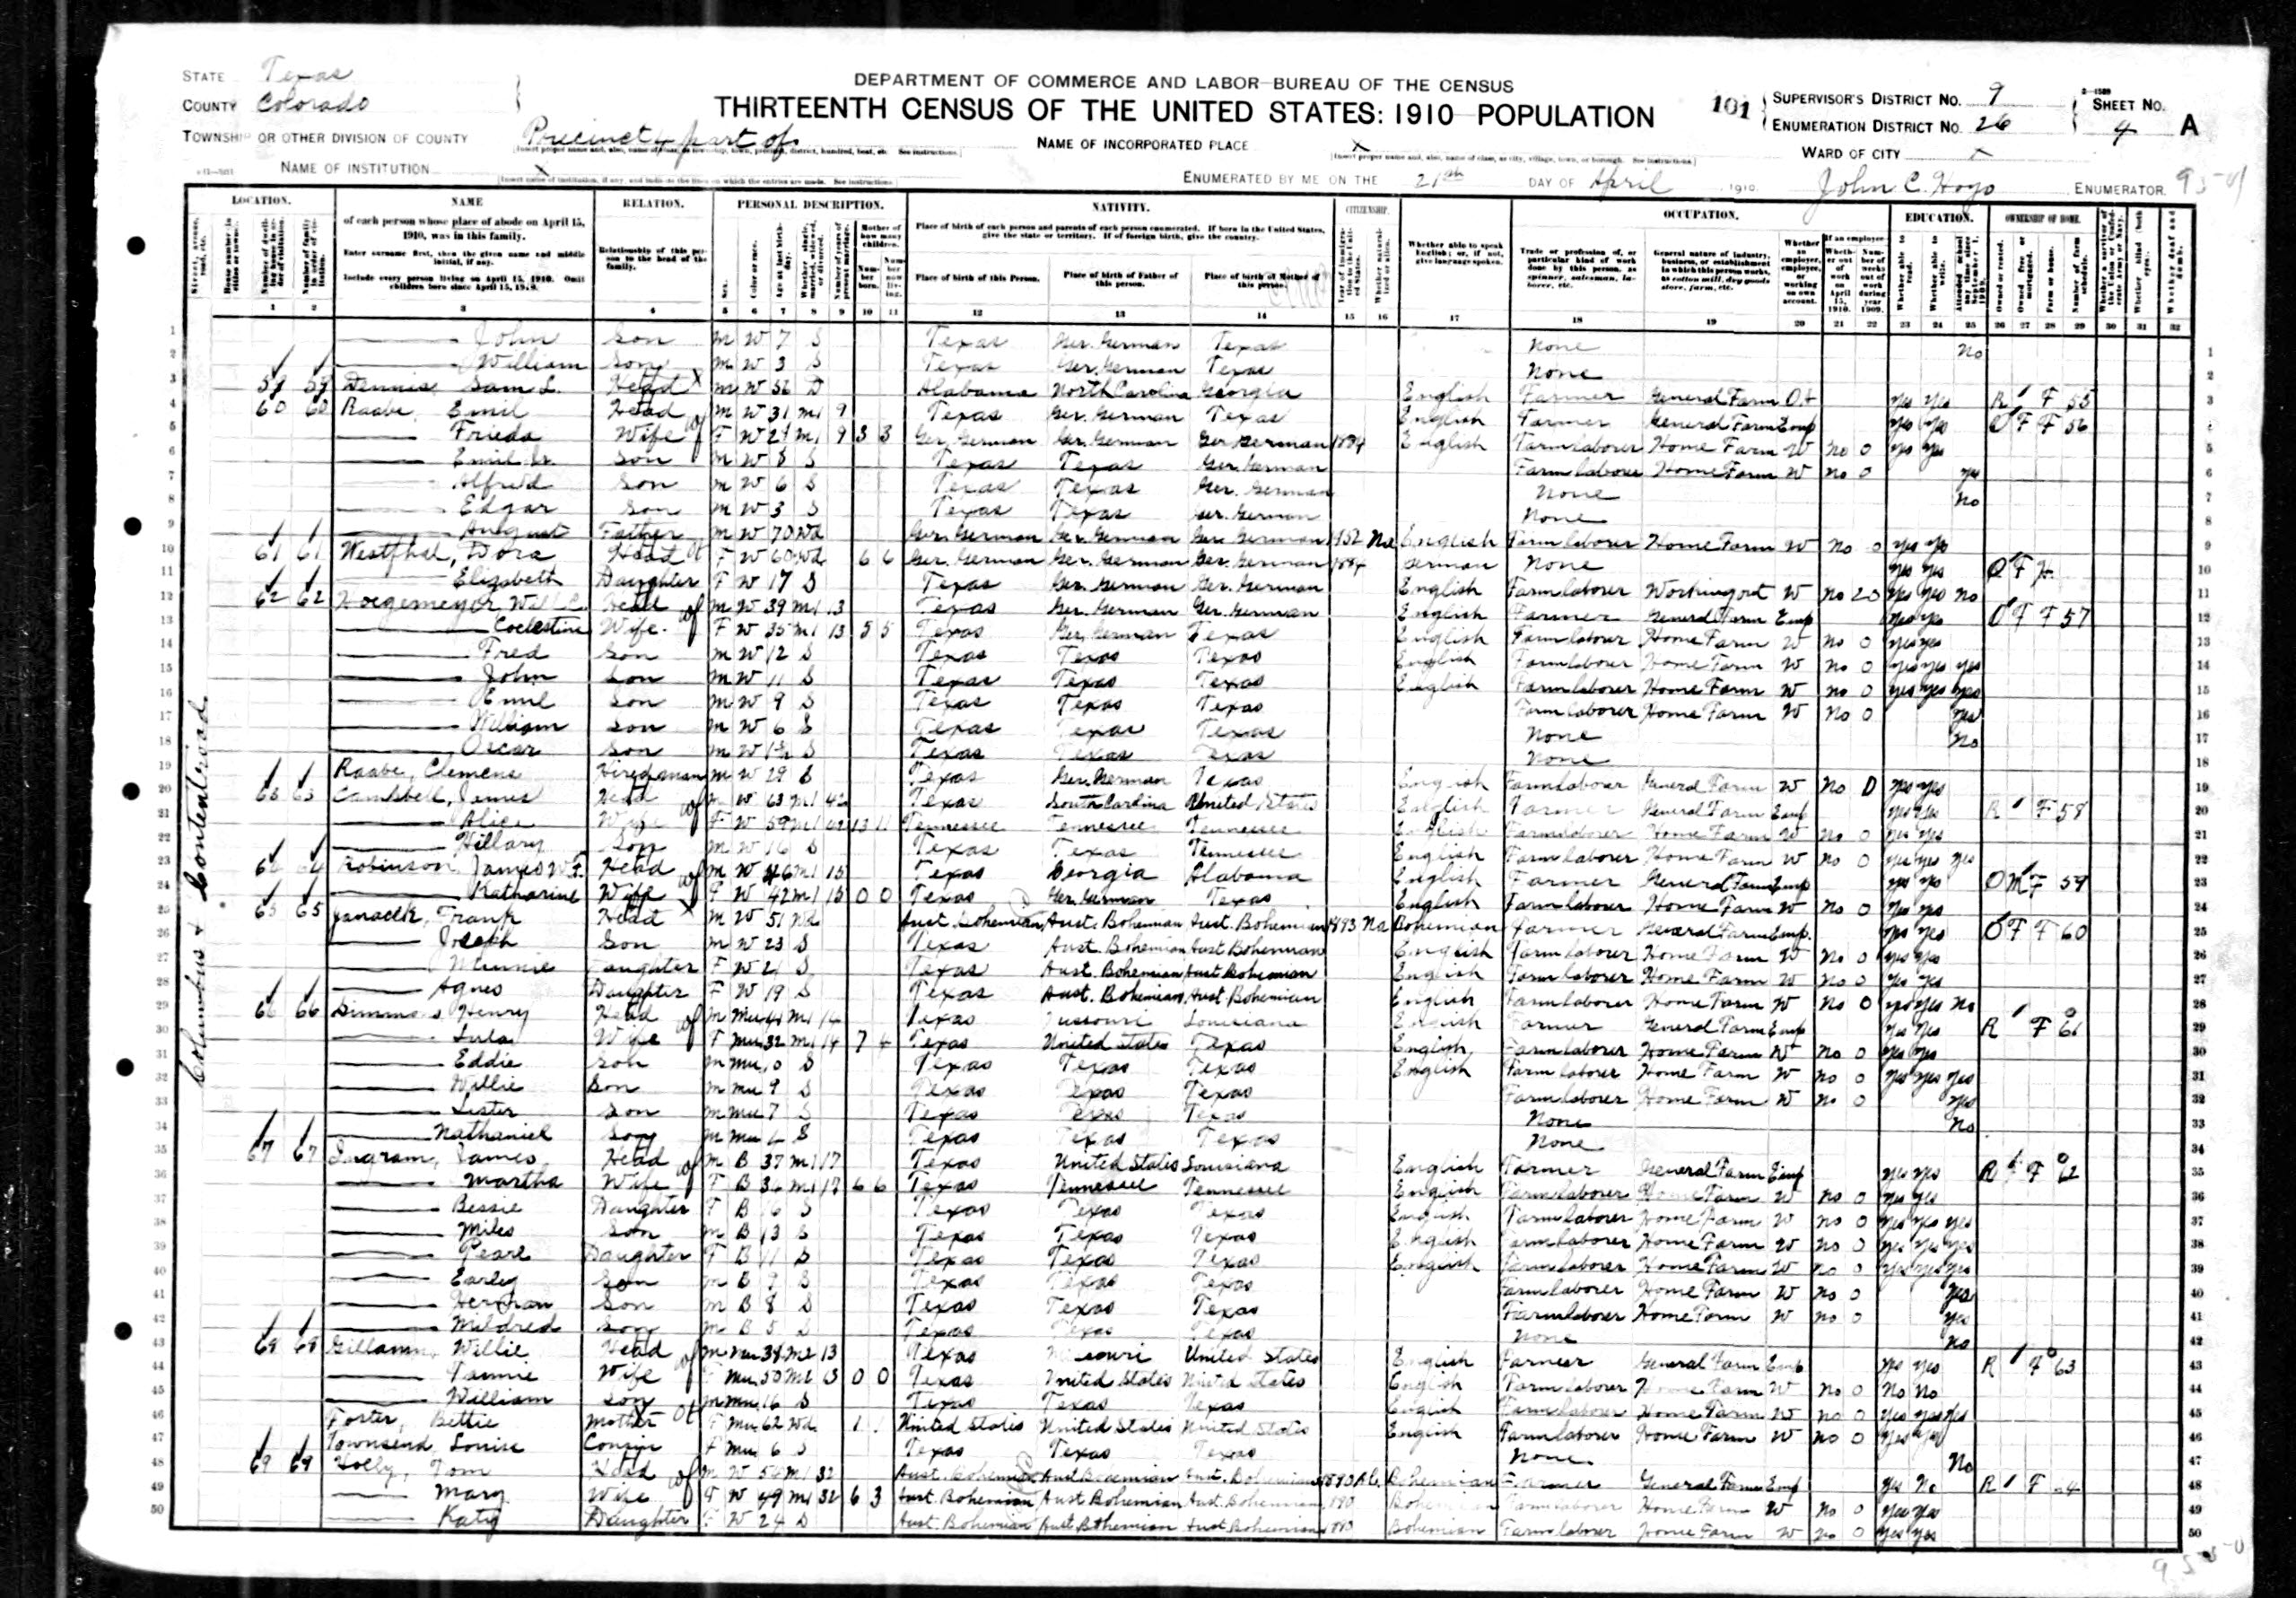 STATE Texas
COUNTY Colorado
DEPARTMENT OF COMMERCE AND LABOR—BUREAU OF THE CENSUS
THIRTEENTH CENSUS OF THE UNITED STATES: 1910 POPULATION
101
SUPERVISOR'S DISTRICT NO. 9
ENUMERATION DISTRICT NO. 26
SHEET NO. 4 A
TOWNSHIP OR OTHER DIVISION OF COUNTY Precinct 4 part of
NAME OF INCORPORATED PLACE X
WARD OF CITY X
NAME OF INSTITUTION X
ENUMERATED BY ME ON THE 21st DAY OF April, 1910. John C. Hoyo ENUMERATOR.
LOCATION. NAME RELATION. PERSONAL DESCRIPTION. NATIVITY. CITIZENSHIP. OCCUPATION. EDUCATION. OWNERSHIP OF HOME.
of each person whose place of abode on April 15, 1910, was in this family.
Enter surname first, then the given name and middle initial, if any.
Include every person living on April 15, 1910. Omit children born since April 15, 1910.
Relationship of this person to the head of the family.
Place of birth of each person and parents of each person enumerated. If born in the United States, give the state or territory. If of foreign birth, give the country.
Place of birth of this Person. Place of birth of Father of this person. Place of birth of Mother of this person.
Whether able to speak English; or, if not, give language spoken.
1 2 3 4 5 6 7 8 9 10 11 12 13 14 15 16 17 18 19 20 21 22 23 24 25 26 27 28 29 30 31 32
Columbus &
1 John Son M W 7 S Texas Ger. German Texas None No
2 William Son M W 3 S Texas Ger. German Texas None
3 59 59 Dennis Sam L. Head M W 56 D Alabama North Carolina Georgia English Farmer General Farm yes yes R F 55
4 60 60 Raabe, Emil Head M W 31 M1 9 Texas Ger. German Texas English Farmer General Farm Emp yes yes O F F 56
5 Frieda Wife F W 29 M1 9 3 3 Ger. German Ger. German Ger. German 1884 English Farm laborer Home Farm W no 0 yes yes
6 Emil Jr. Son M W 8 S Texas Texas Ger. German Farm laborer Home Farm W no 0 yes
7 Alfred Son M W 6 S Texas Texas Ger. German None No
8 Edgar Son M W 3 S Texas Texas Ger. German None
9 August Father M W 70 Wd Ger. German Ger. German Ger. German 1852 Na English Farm laborer Home Farm W No 0 yes yes
10 61 61 Westphal, Dora Head F W 60 Wd 6 6 Ger. German Ger. German Ger. German 1884 German None yes yes O F H
11 Elizabeth Daughter F W 17 S Texas Ger. German Ger. German English Farm laborer Working out W no 20 yes yes no
12 62 62 Hoegemeyer Will C. Head M W 39 M1 13 Texas Ger. German Ger. German English Farmer General Farm Emp yes yes O F F 57
13 Coelestine Wife F W 35 M1 13 5 5 Texas Ger. German Texas English Farm laborer Home Farm W no 0 yes yes
14 Fred Son M W 12 S Texas Texas Texas English Farm laborer Home Farm W no 0 yes yes yes
15 John Son M W 11 S Texas Texas Texas English Farm laborer Home Farm W no 0 yes yes yes
16 Emil Son M W 9 S Texas Texas Texas Farm laborer Home Farm W no 0 yes
17 William Son M W 6 S Texas Texas Texas None No
18 Oscar Son M W S Texas Texas Texas None
19 Raabe, Clemens Hiredman M W 29 S Texas Ger. German Texas English Farm laborer General Farm W No 0 yes yes
20 63 63 Campbell, James Head M W 63 M1 42 Texas South Carolina United States English Farmer General Farm Emp yes yes R F 58
21 Alice Wife F W 59 M1 42 13 11 Tennessee Tennessee Tennessee English Farm laborer Home Farm W no 0 yes yes
22 Hillary Son M W 16 S Texas Texas Tennessee English Farm laborer Home Farm W no 0 yes yes yes
23 64 64 Robinson James W F. Head M W 46 M1 15 Texas Georgia Alabama English Farmer General Farm Emp yes yes O M F 59
24 Katharine Wife F W 42 M1 15 0 0 Texas Ger. German Texas English Farm laborer Home Farm W No 0 yes yes
25 65 65 Janacek, Frank Head M W 51 Wd Aust. Bohemian Aust. Bohemian Aust. Bohemian Na Bohemian Farmer General Farm Emp. yes yes O F F 60
26 Joseph Son M W 23 S Texas Aust. Bohemian Aust Bohemian English Farm laborer Home Farm W no 0 yes yes
27 Minnie Daughter F W 21 S Texas Aust. Bohemian Aust Bohemian English Farm laborer Home Farm W No 0 yes yes
28 Agnes Daughter F W 19 S Texas Aust. Bohemian Aust Bohemian English Farm laborer Home Farm W No 0 yes yes No
29 66 66 Simms, Henry Head M Mu 41 M1 14 Texas Missouri Louisiana English Farmer General Farm Emp yes yes R F 61
30 Lula Wife F Mu 32 M1 14 7 4 Texas United States Texas English Farm laborer Home Farm W no 0 yes yes
31 Eddie Son M Mu 10 S Texas Texas Texas English Farm laborer Home Farm W no 0 yes yes yes
32 Willie Son M Mu 9 S Texas Texas Texas Farm laborer Home Farm W no 0 yes
33 Lister Son M Mu 7 S Texas Texas Texas None No
34 Nathaniel Son M Mu S Texas Texas Texas None
35 67 67 Ingram, James Head M B 37 M1 17 Texas United States Louisiana English Farmer General Farm Emp yes yes R F 62
36 Martha Wife F B 36 M1 17 6 6 Texas Tennessee Tennessee English Farm laborer Home Farm W no 0 yes yes
37 Bessie Daughter F B 16 S Texas Texas Texas English Farm laborer Home Farm W no 0 yes yes yes
38 Miles Son M B 13 S Texas Texas Texas English Farm laborer Home Farm W no 0 yes yes yes
39 Pearl Daughter F B 11 S Texas Texas Texas English Farm laborer Home Farm W no 0 yes yes yes
40 Early Son M B 9 S Texas Texas Texas Farm laborer Home Farm W no 0 yes
41 Herman Son M B 8 S Texas Texas Texas Farm laborer Home Farm W no 0 yes
42 Mildred Son M B 5 S Texas Texas Texas None No
43 68 68 Gillamn, Willie Head M Mu 38 M2 13 Texas Missouri United States English Farmer General Farm Emp yes yes R F 63
44 Fannie Wife F Mu 50 M2 13 0 0 Texas United States United States English Farm laborer Home Farm W No 0 No No
45 William Son M Mu 16 S Texas Texas Texas English Farm laborer Home Farm W no 0 yes yes yes
46 Foster, Bettie Mother F Mu 62 Wd 1 United States United States United States English Farm laborer Home Farm W no 0 yes yes
47 Townsend, Louise Cousin F Mu 6 S Texas Texas Texas None No
48 69 69 Holly, Tom Head M W 56 M1 32 Aust. Bohemian Aust Bohemian Aust. Bohemian 1880 Bohemian Farmer General Farm Emp yes No R F
49 Mary Wife F W 49 M1 32 6 3 Aust. Bohemian Aust Bohemian Aust. Bohemian Bohemian Farm laborer Home Farm W no 0 yes yes
50 Katy Daughter F W 24 S Aust. Bohemian Aust Bohemian Aust Bohemian Bohemian Farm laborer Home Farm W no 0 yes yes